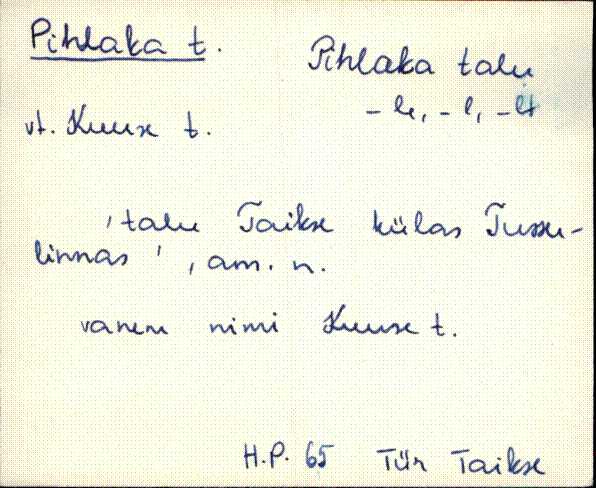 Pihlaka t.
Pihlaka talu
-le, -l, -lt
vt. Kuuse t.
'talu Taikse külas Tussu-
linnas', am. n.
vanem nimi Kuuse t.
H.P. 65 Tür Taikse